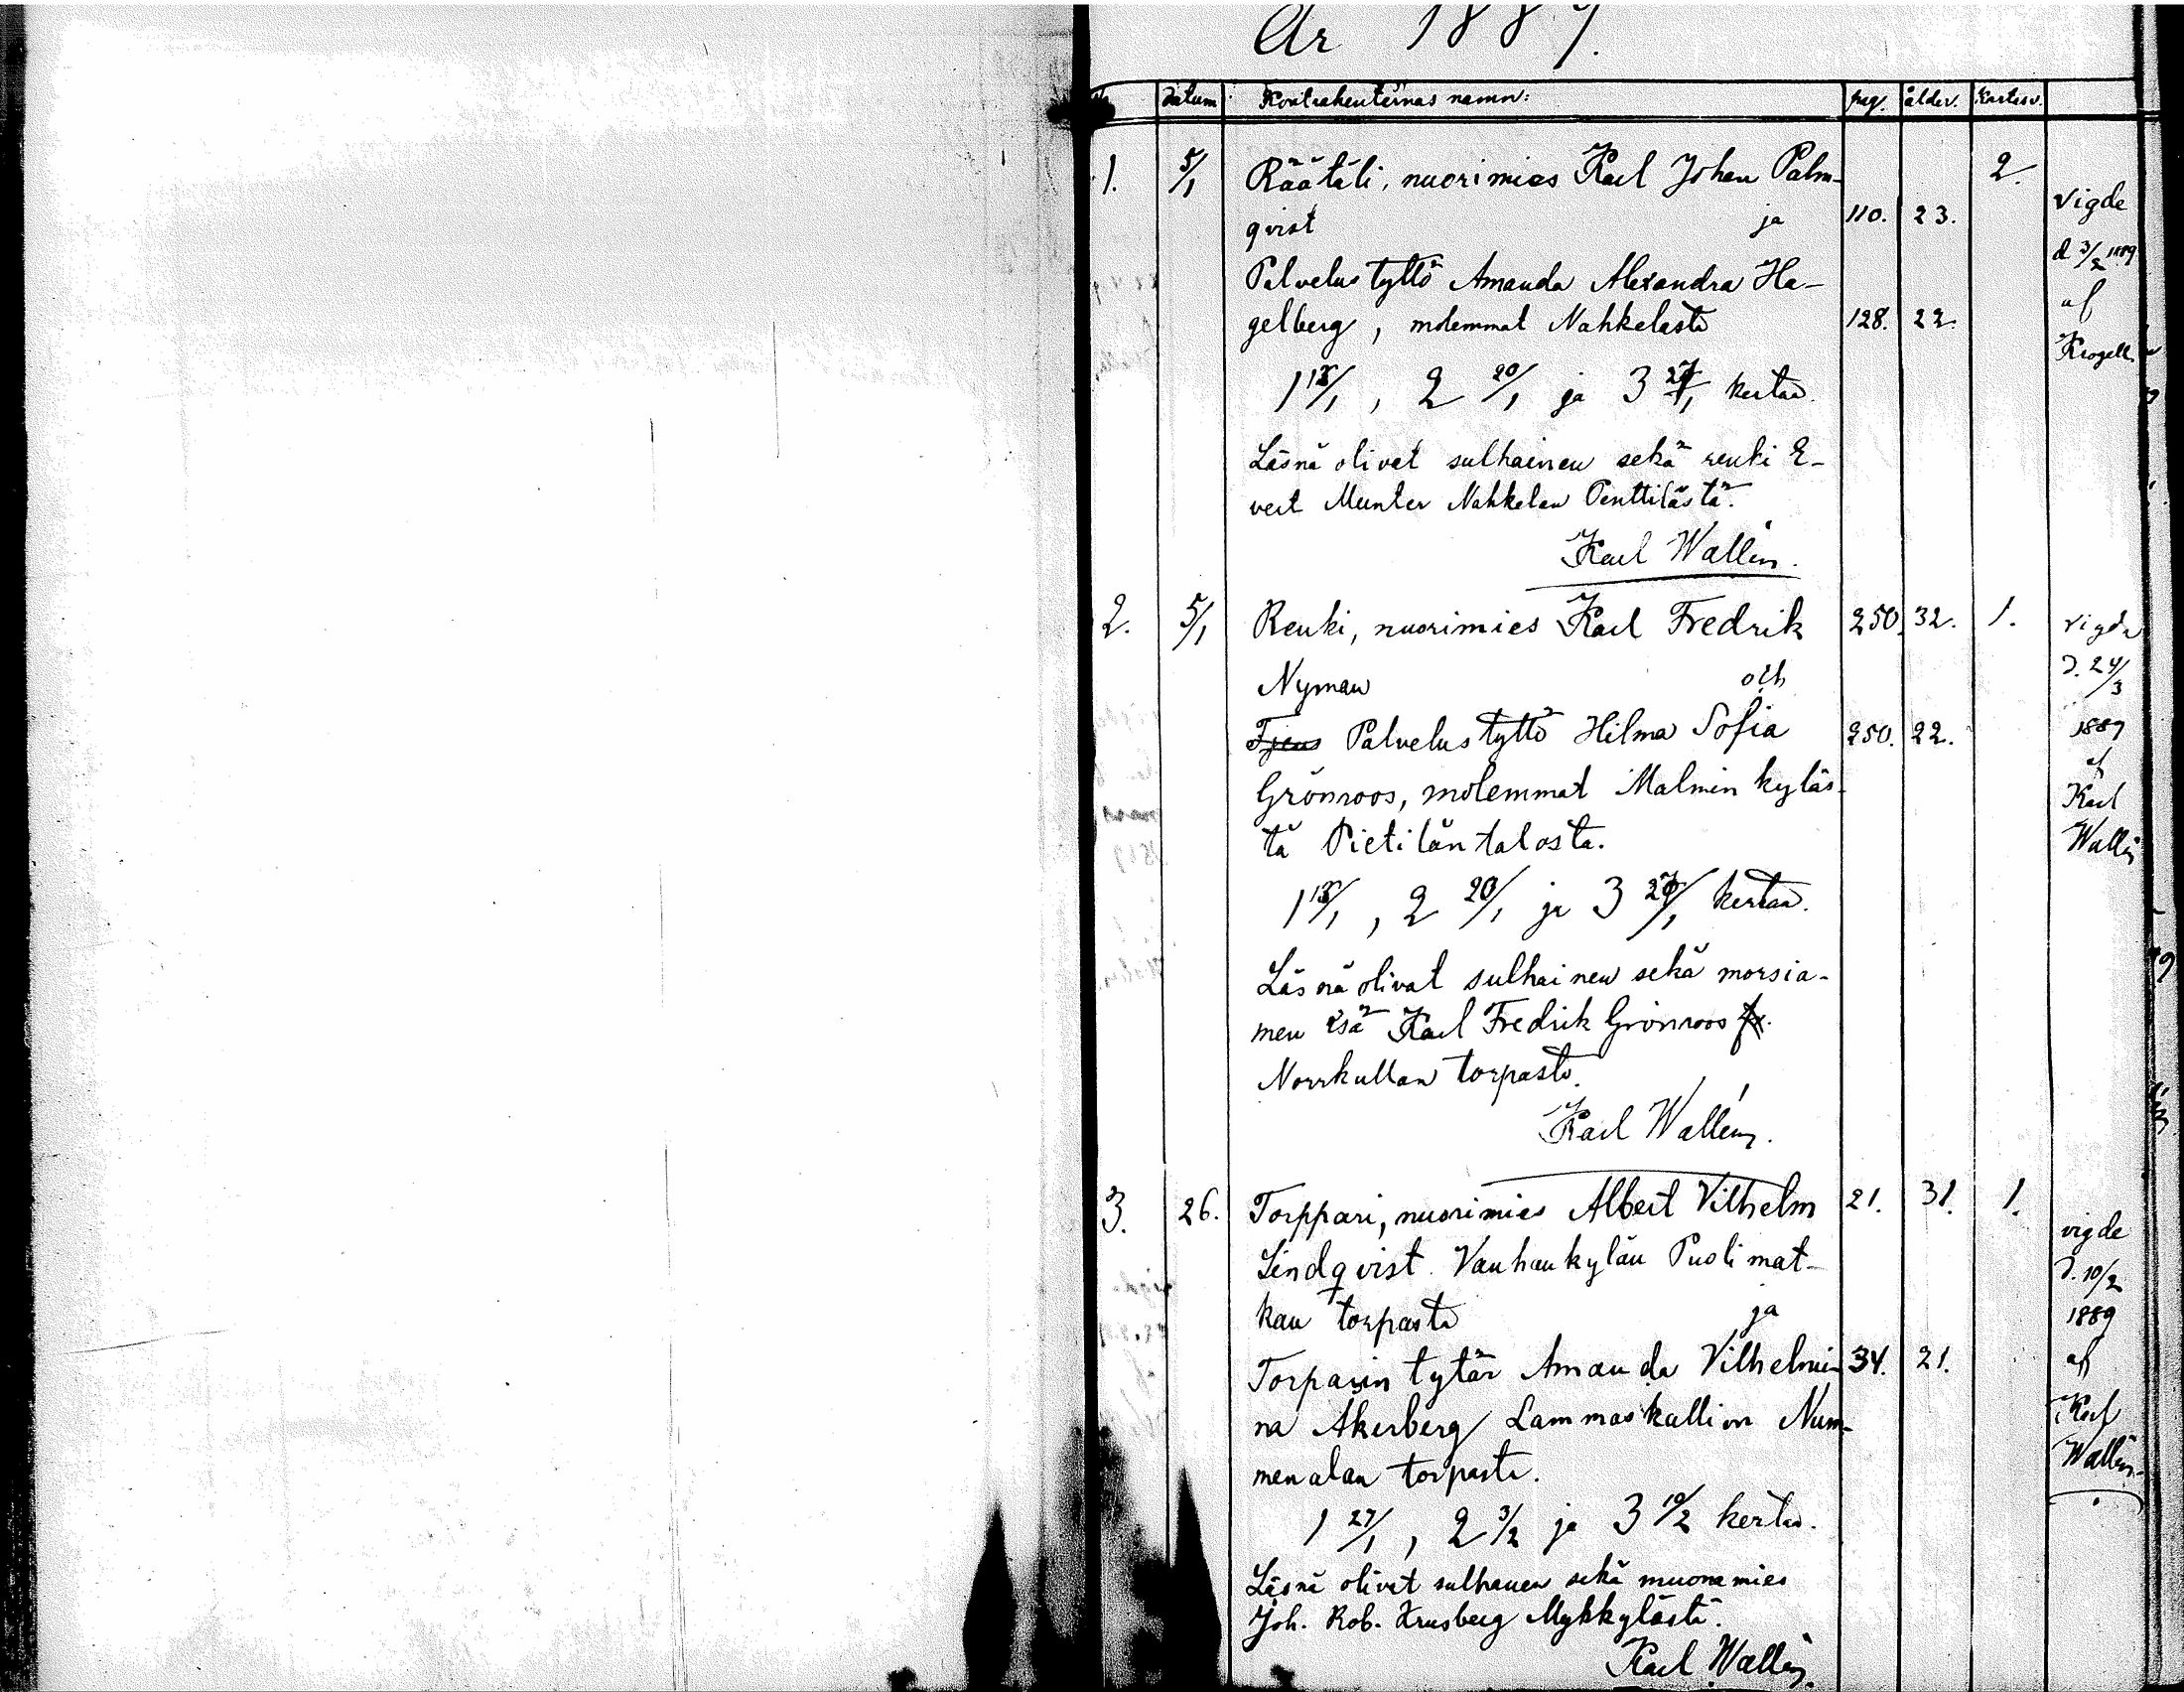 År 1889.
N:o Datum Kontrahenternas namn: pag. ålder. Kartasv.
1. 5/1 Räätäli, nuorimies Karl Johan Palm- 2.
qvist ja 110. 23. Vigde
d 3/2 1889
Palvelustyttö Amanda Alexandra Ha- af
gelberg, molemmat Nahkelasta 128. 22. Krogell
1 13/1, 2 20/1 ja 3 27/1 kertaa.
Läsnä olivat sulhainen sekä renki E-
vert Munter Nahkelan Penttilästä.
Karl Wallén.
2. 5/1 Renki, nuorimies Karl Fredrik 250. 32. 1. vigde
Nyman och d. 24/3
Tjens Palvelustyttö Hilma Sofia 250. 22. 1889
af
Grönroos, molemmat Malmin kyläs- Karl
tä Pietilän talosta. Wallén
1 13/1, 2 20/1 ja 3 27/1 kertaa.
Läsnä olivat sulhainen sekä morsia-
men isä Karl Fredrik Grönroos
Norrkullan torpasta.
Karl Wallén.
3. 26. Torppari, nuorimies Albert Vilhelm 21. 31. 1. vigde
Lindqvist Vanhankylän Puolimat- d. 10/2
kan torpasta ja 1889
Torparin tytär Amanda Vilhelmi- 34. 21. af
na Åkerberg Lammaskallion Num- Karl
menalan torpasta. Wallén.
1 27/1, 2 3/2 ja 3 10/2 kertaa.
Läsnä olivat sulhanen sekä muonamies
Joh. Rob. Krusberg Mykkylästä.
Karl Wallén.